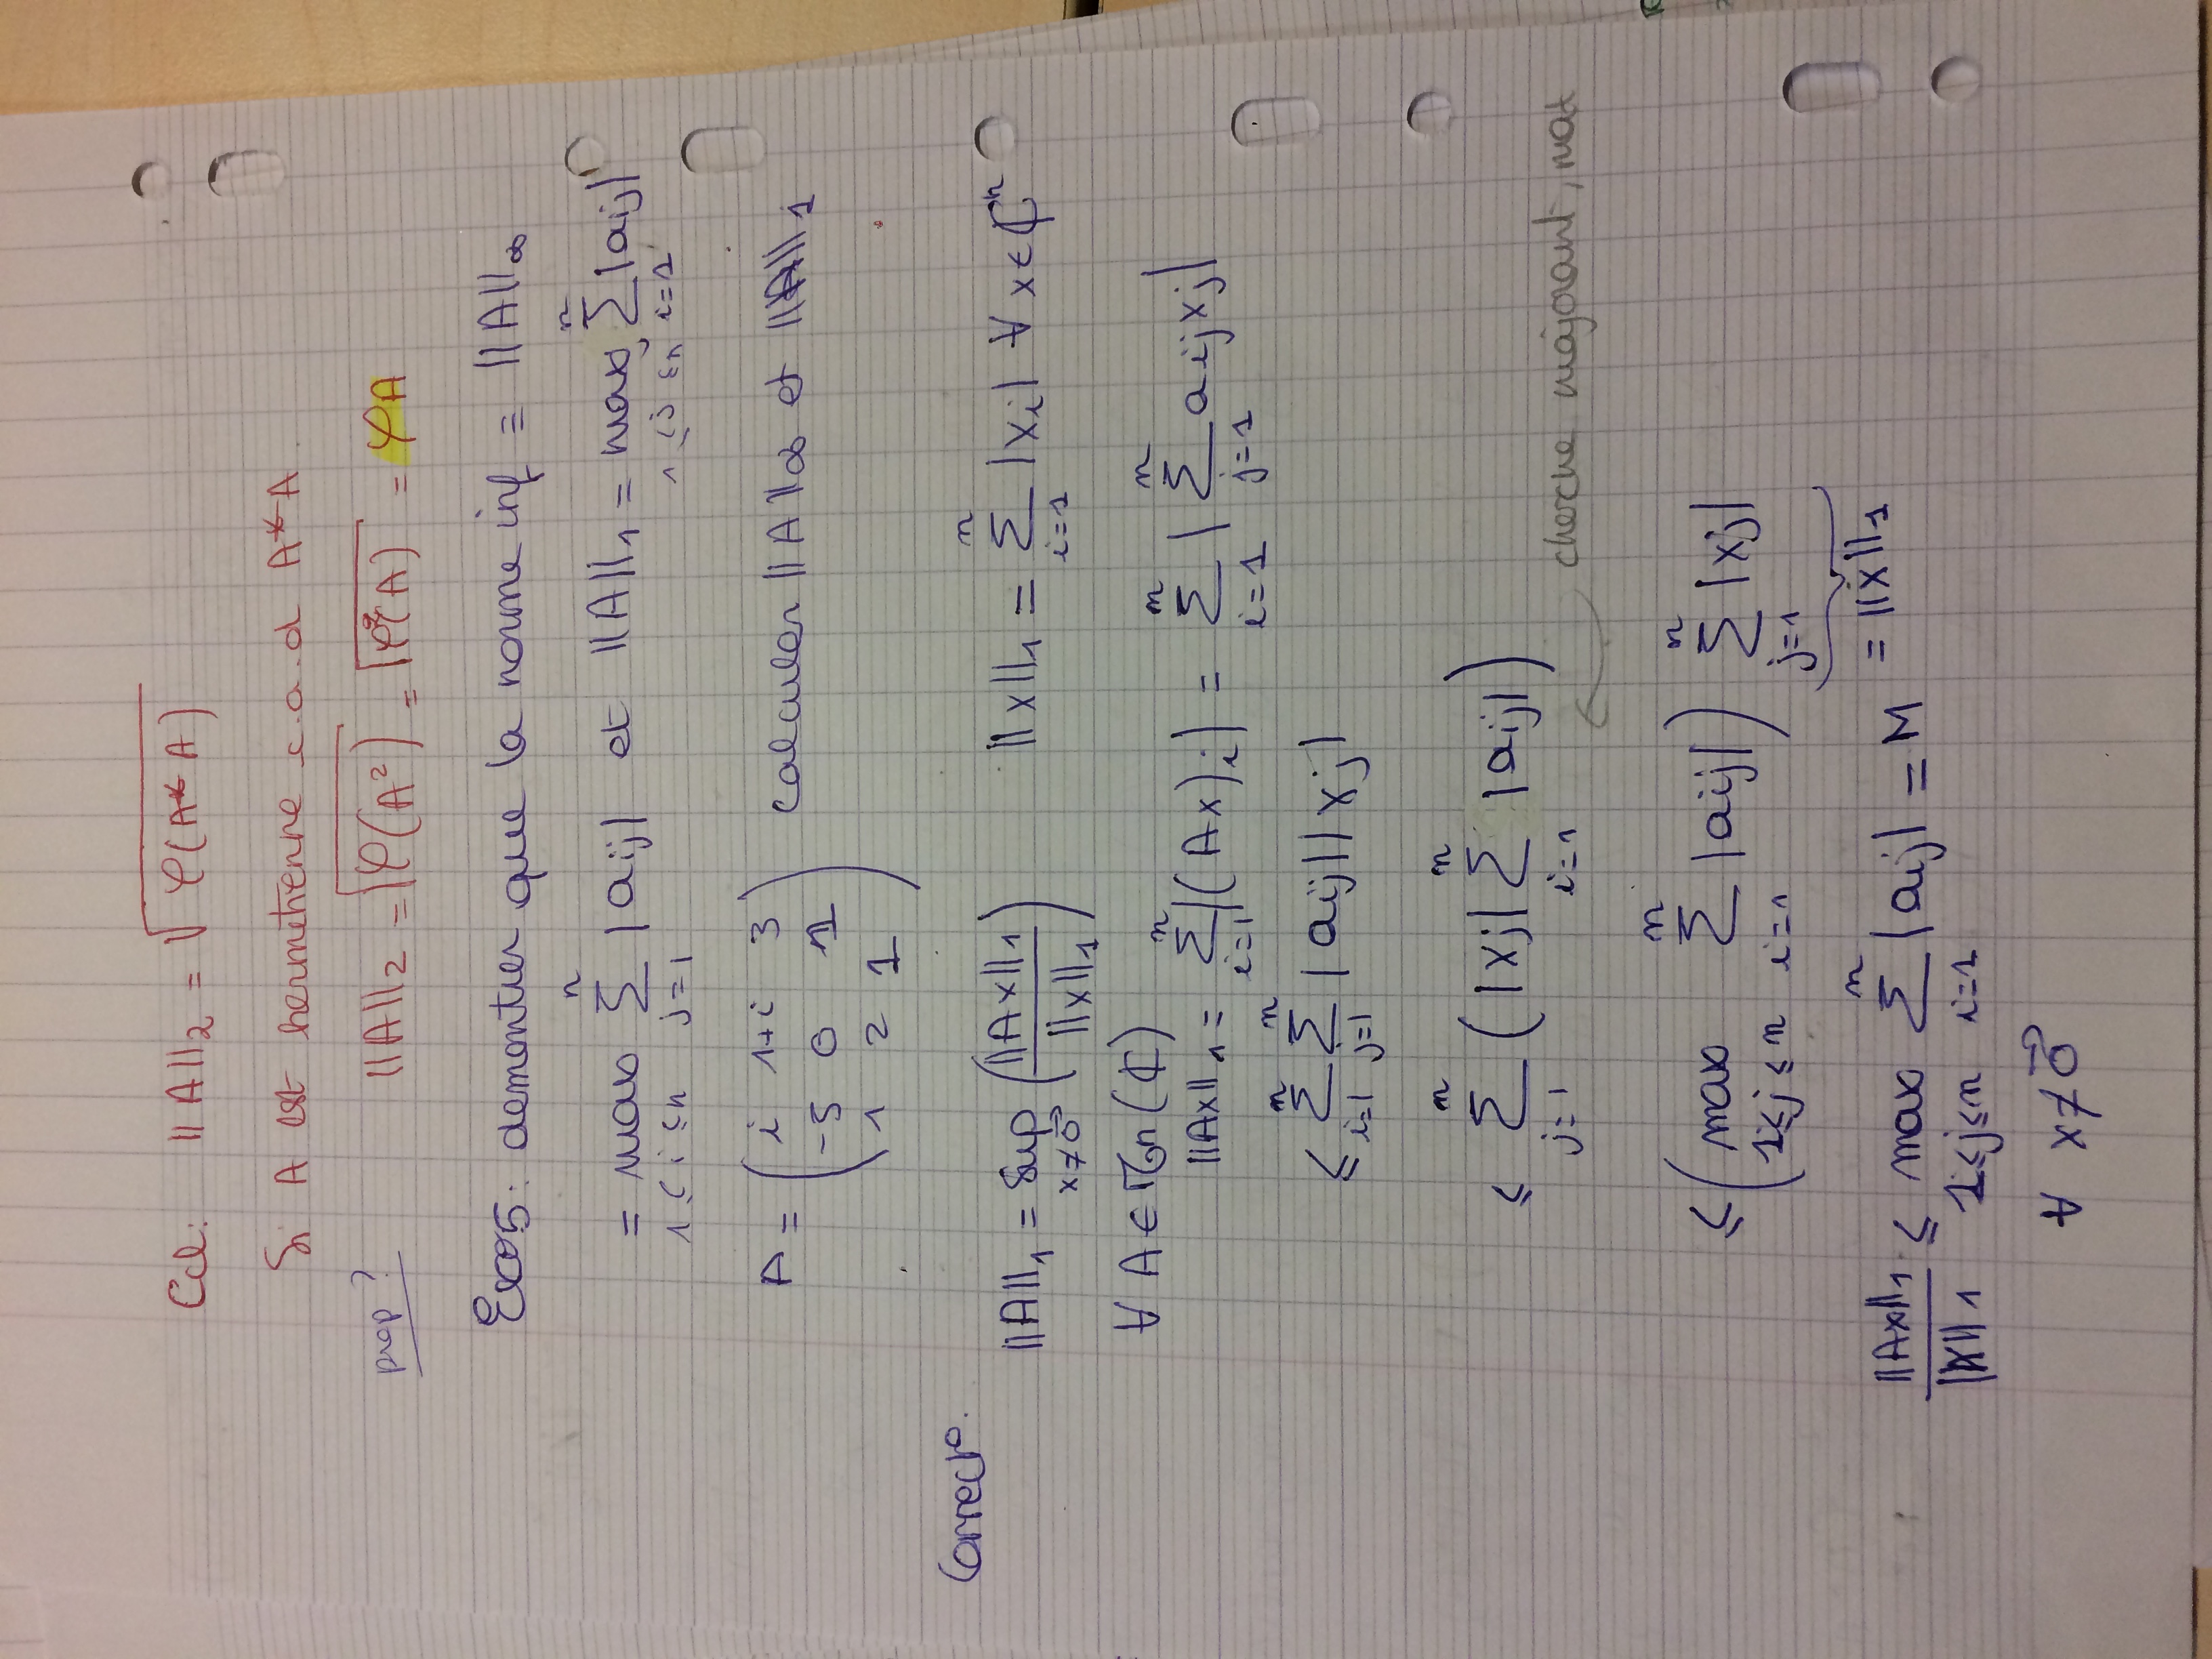 Ccl: ||A||₂ = √φ(A* A)
Si A est hermitienne c.a.d A*A.
prop? ||A||₂ = √φ(A²) = √φ²(A) = φA
Exo5: demontrer que la norme inf = ||A||∞
= max_{1≤i≤n} Σ_{j=1}^{n} |aij| et ||A||₁ = max_{1≤j≤n} Σ_{i=1}^{n} |aij|
A = ( i 1+i 3
-5 0 1
1 2 1 ) calculer ||A||∞ et ||A||₁
Correct°.
||A||₁ = Sup_{x≠0⃗} ( ||Ax||₁ / ||x||₁ ) ||x||₁ = Σ_{i=1}^{n} |xi| ∀ x ∈ ℂⁿ
∀ A ∈ Mn(ℂ)
||Ax||₁ = Σ_{i=1}^{n} |(Ax)i| = Σ_{i=1}^{n} | Σ_{j=1}^{n} aij xj |
≤ Σ_{i=1}^{n} Σ_{j=1}^{n} |aij| |xj|
≤ Σ_{j=1}^{n} ( |xj| Σ_{i=1}^{n} |aij| )
cherche majorant, max
≤ ( max_{1≤j≤n} Σ_{i=1}^{n} |aij| ) Σ_{j=1}^{n} |xj|
= ||x||₁
||Ax||₁ / ||x||₁ ≤ max_{1≤j≤n} Σ_{i=1}^{n} |aij| = M
∀ x≠0⃗